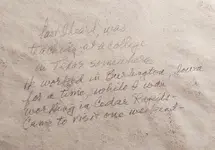 I heard, was
teaching at a college
in Tulsa somewhere
He worked in Burlington, Iowa
for a time, while I was
working in Cedar Rapids-
Came to visit one weekend-